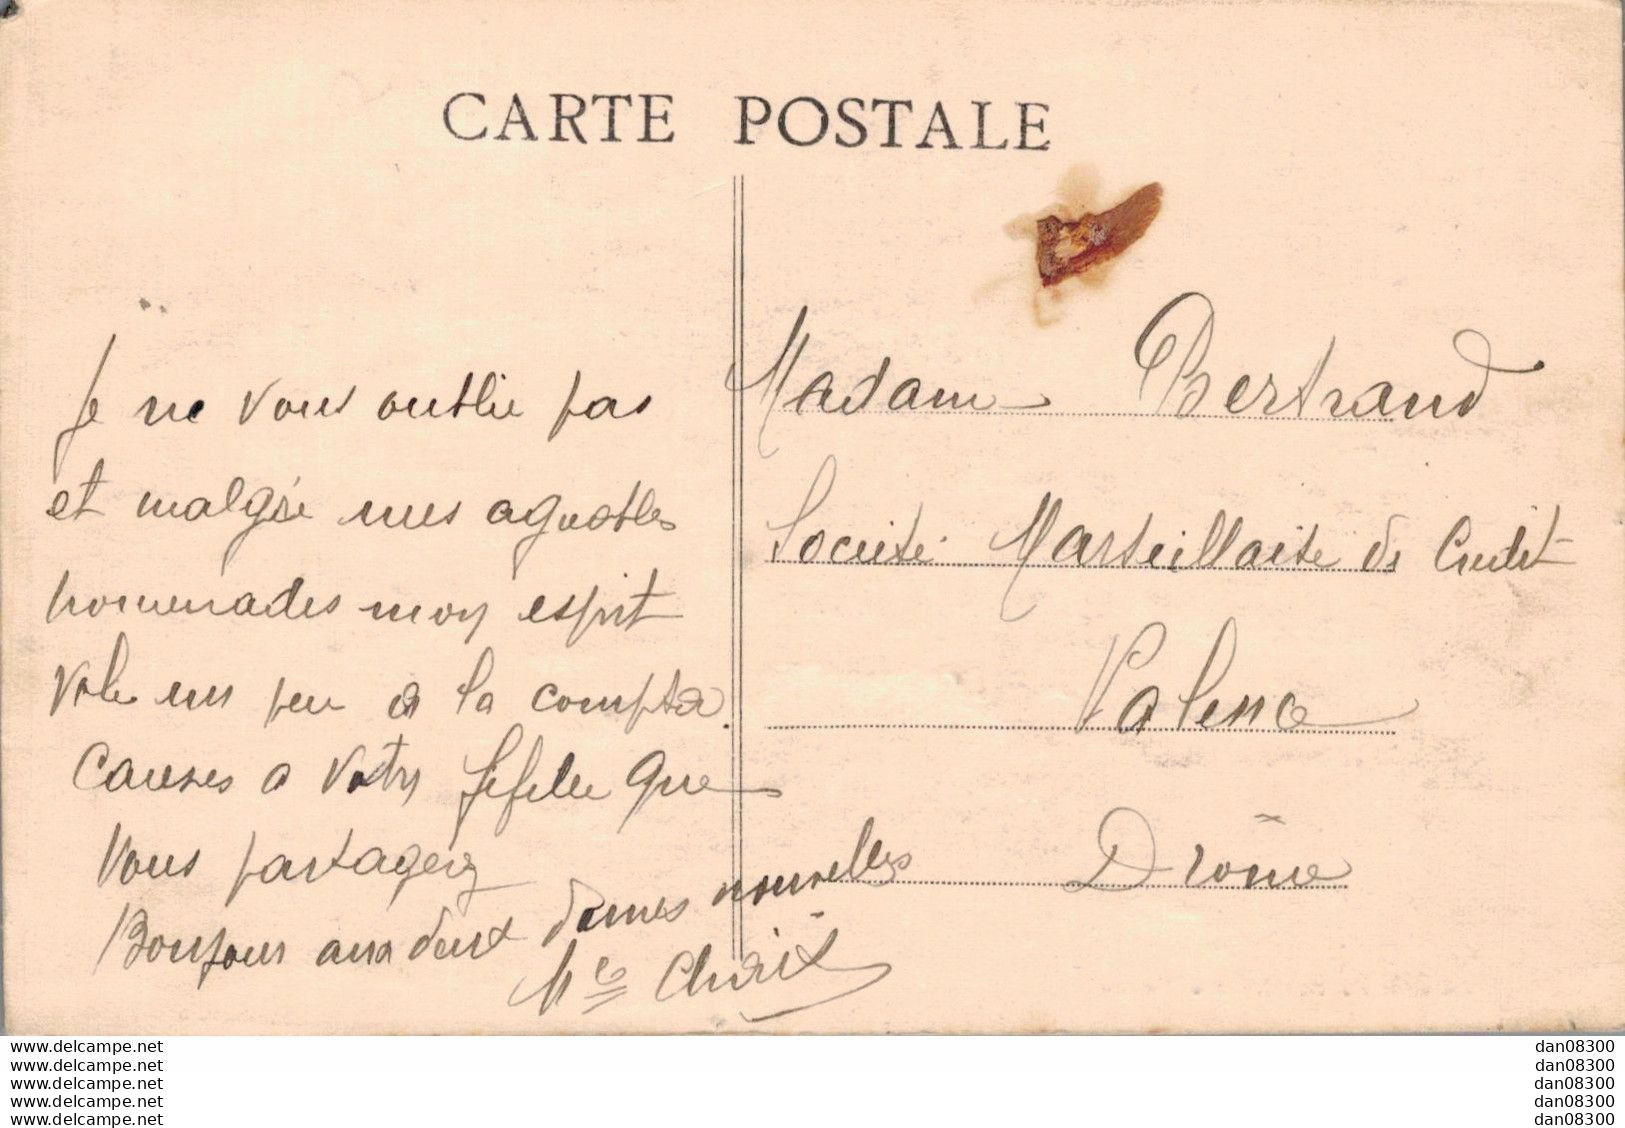 CARTE POSTALE
Je ne vous oublie pas
et malgré mes agréables
promenades mon esprit
vole un peu à la compta.
Causes a votre que
vous partagerez
Bonjour aux deux dames nouvelles
Mce
Madame Bertrand
Société Marseillaise de Crédit
Valence
Drôme
www.delcampe.net
www.delcampe.net
www.delcampe.net
www.delcampe.net
www.delcampe.net
dan08300
dan08300
dan08300
dan08300
dan08300